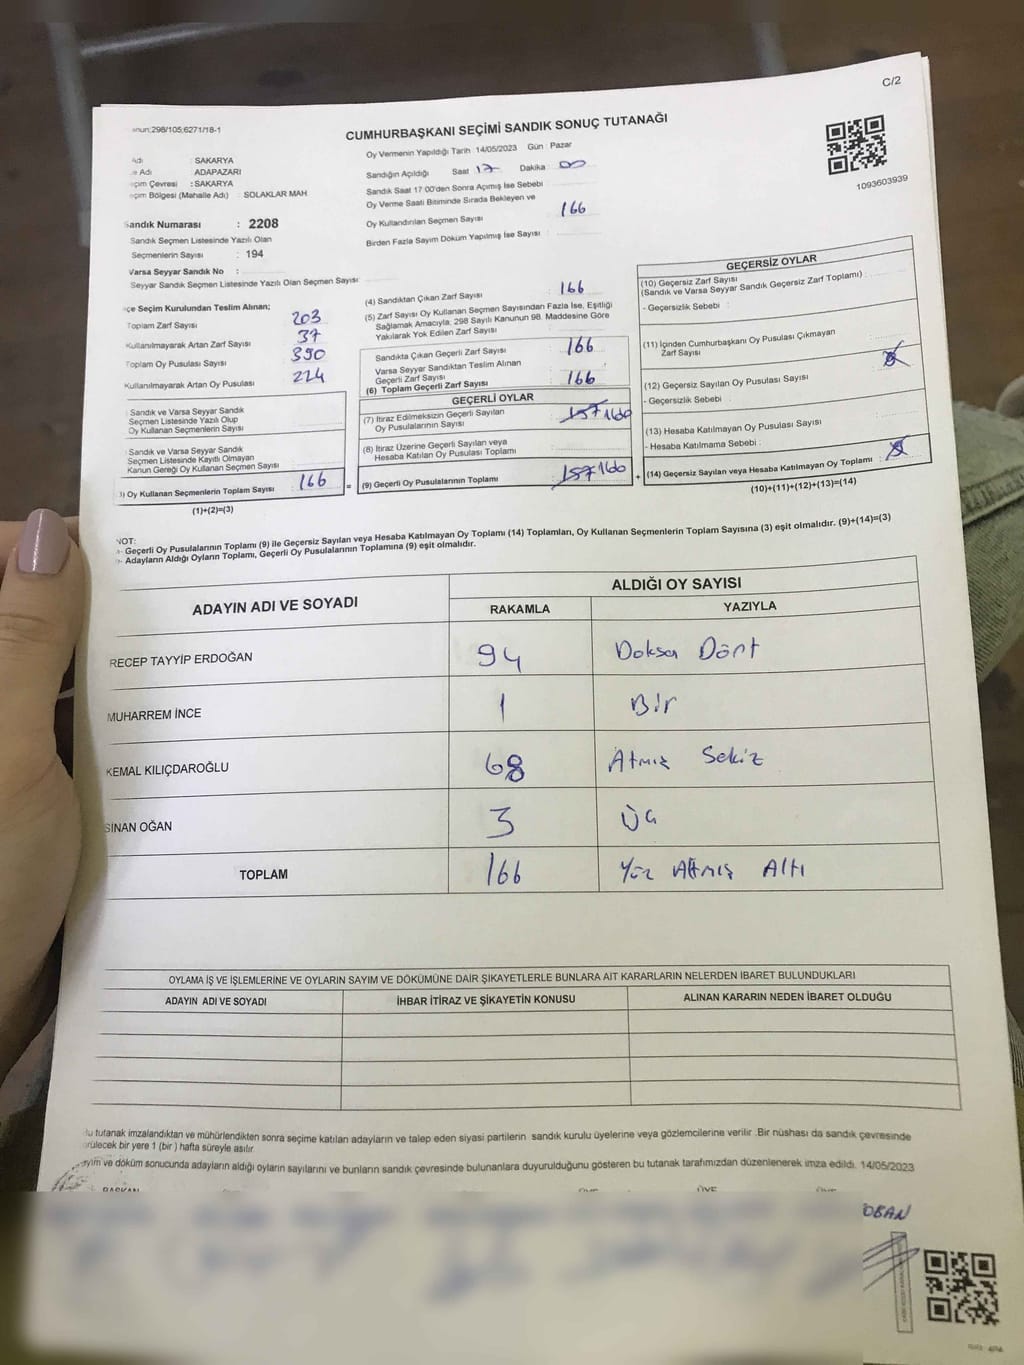 C/2
CUMHURBAŞKANI SEÇİMİ SANDIK SONUÇ TUTANAĞI
1093603939
anun;298/105;6271/18-1
Adı : SAKARYA
e Adı : ADAPAZARI
eçim Çevresi : SAKARYA
eçim Bölgesi (Mahalle Adı) : SOLAKLAR MAH
Sandık Numarası : 2208
Sandık Seçmen Listesinde Yazılı Olan
Seçmenlerin Sayısı : 194
Varsa Seyyar Sandık No :
Seyyar Sandık Seçmen Listesinde Yazılı Olan Seçmen Sayısı :
Oy Vermenin Yapıldığı Tarih :14/05/2023 Gün : Pazar
Sandığın Açıldığı Saat : 17 Dakika : 00
Sandık Saat 17:00'den Sonra Açımış İse Sebebi :
Oy Verme Saati Bitiminde Sırada Bekleyen ve
Oy Kullandırılan Seçmen Sayısı : 166
Birden Fazla Sayım Döküm Yapılmış İse Sayısı :
çe Seçim Kurulundan Teslim Alınan;
Toplam Zarf Sayısı : 203
Kullanılmayarak Artan Zarf Sayısı : 37
Toplam Oy Pusulası Sayısı : 390
Kullanılmayarak Artan Oy Pusulası : 224
Sandık ve Varsa Seyyar Sandık
Seçmen Listesinde Yazılı Olup
Oy Kullanan Seçmenlerin Sayısı :
Sandık ve Varsa Seyyar Sandık
Seçmen Listesinde Kayıtlı Olmayan
Kanun Gereği Oy Kullanan Seçmen Sayısı :
) Oy Kullanan Seçmenlerin Toplam Sayısı : 166 =
(1)+(2)=(3)
(4) Sandıktan Çıkan Zarf Sayısı : 166
(5) Zarf Sayısı Oy Kullanan Seçmen Sayısından Fazla İse, Eşitliği
Sağlamak Amacıyla; 298 Sayılı Kanunun 98. Maddesine Göre
Yakılarak Yok Edilen Zarf Sayısı :
Sandıkta Çıkan Geçerli Zarf Sayısı : 166
Varsa Seyyar Sandıktan Teslim Alınan
Geçerli Zarf Sayısı :
(6) Toplam Geçerli Zarf Sayısı : 166
GEÇERLİ OYLAR
(7) İtiraz Edilmeksizin Geçerli Sayılan
Oy Pusulalarının Sayısı : 157 160
(8) İtiraz Üzerine Geçerli Sayılan veya
Hesaba Katılan Oy Pusulası Toplamı :
(9) Geçerli Oy Pusulalarının Toplamı : 157 160 +
GEÇERSİZ OYLAR
(10) Geçersiz Zarf Sayısı
(Sandık ve Varsa Seyyar Sandık Geçersiz Zarf Toplamı) :
- Geçersizlik Sebebi :
(11) İçinden Cumhurbaşkanı Oy Pusulası Çıkmayan
Zarf Sayısı :
(12) Geçersiz Sayılan Oy Pusulası Sayısı :
- Geçersizlik Sebebi :
(13) Hesaba Katılmayan Oy Pusulası Sayısı :
- Hesaba Katılmama Sebebi :
(14) Geçersiz Sayılan veya Hesaba Katılmayan Oy Toplamı :
(10)+(11)+(12)+(13)=(14)
NOT:
- Geçerli Oy Pusulalarının Toplamı (9) ile Geçersiz Sayılan veya Hesaba Katılmayan Oy Toplamı (14) Toplamları, Oy Kullanan Seçmenlerin Toplam Sayısına (3) eşit olmalıdır. (9)+(14)=(3)
- Adayların Aldığı Oyların Toplamı, Geçerli Oy Pusulalarının Toplamına (9) eşit olmalıdır.
ADAYIN ADI VE SOYADI ALDIĞI OY SAYISI
RAKAMLA YAZIYLA
RECEP TAYYİP ERDOĞAN 94 Doksa Dört
MUHARREM İNCE 1 Bir
KEMAL KILIÇDAROĞLU 68 Atmış Sekiz
SİNAN OĞAN 3 Üç
TOPLAM 166 Yüz Atmış Altı
OYLAMA İŞ VE İŞLEMLERİNE VE OYLARIN SAYIM VE DÖKÜMÜNE DAİR ŞİKAYETLERLE BUNLARA AİT KARARLARIN NELERDEN İBARET BULUNDUKLARI
ADAYIN ADI VE SOYADI İHBAR İTİRAZ VE ŞİKAYETİN KONUSU ALINAN KARARIN NEDEN İBARET OLDUĞU
Bu tutanak imzalandıktan ve mühürlendikten sonra seçime katılan adayların ve talep eden siyasi partilerin sandık kurulu üyelerine veya gözlemcilerine verilir .Bir nüshası da sandık çevresinde
görülecek bir yere 1 (bir ) hafta süreyle asılır.
ayım ve döküm sonucunda adayların aldığı oyların sayılarını ve bunların sandık çevresinde bulunanlara duyurulduğunu gösteren bu tutanak tarafımızdan düzenlenerek imza edildi. 14/05/2023
BAŞKAN ÜYE ÜYE ÜYE
OBAN